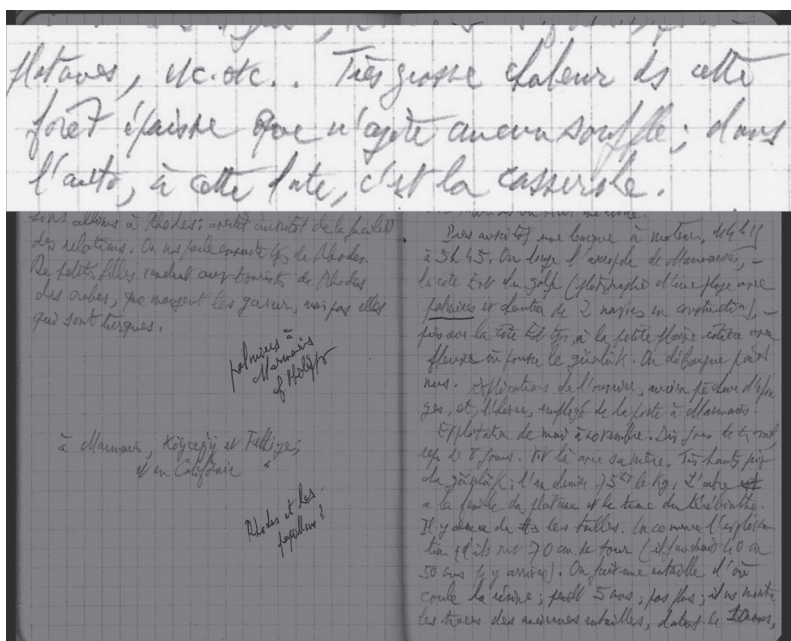 platanes, etc. etc.. Très grosse chaleur ds cette
forêt épaisse que n'agite aucun souffle ; dans
l'auto, à cette date, c'est la casserole.
allons à Rhodes :
des relations. On ns parle ensuite de Rhodes.
De petites filles vendent aux touristes de Rhodes
des crabes, que mangent les gavur, mais pas elles
qui sont turques.
palmiers à
Marmaris
f. Philipp
à Marmaris, Köyceğiz et Fethiye,
et en Californie
Rhodes et les
papillons ?
Puis aussitôt une barque à moteur,
à 5h45. On longe l'acropole de Marmaris, –
la côte Est du golfe (photographie d'une plage avec
palmiers et chantier de 2 navires en construction), –
puis sur la côte Est tjs, à la petite plaine côtière
où pousse le günlük. On débarque pieds
nus. Explications de l'ouvrier, ancien pêcheur d'épon-
ges, et, l'hiver, employé de la poste à Marmaris.
Exploitation de mai à novembre. Dix jours de travail
repos de 8 jours. Vit là avec sa mère. Très hauts prix
du günlük : l'an dernier, le kg. L'arbre
a la feuille du platane et le tronc du térébinthe.
Il y en a de ttes les tailles. On commence l'exploita-
tion qd ils ont 70 cm de tour (il faudrait 40 ou
50 ans pr y arriver). On fait une entaille d'où
coule la résine ; 5 ans, pas plus ; il ns montre
les traces des anciennes entailles, 10 ans,